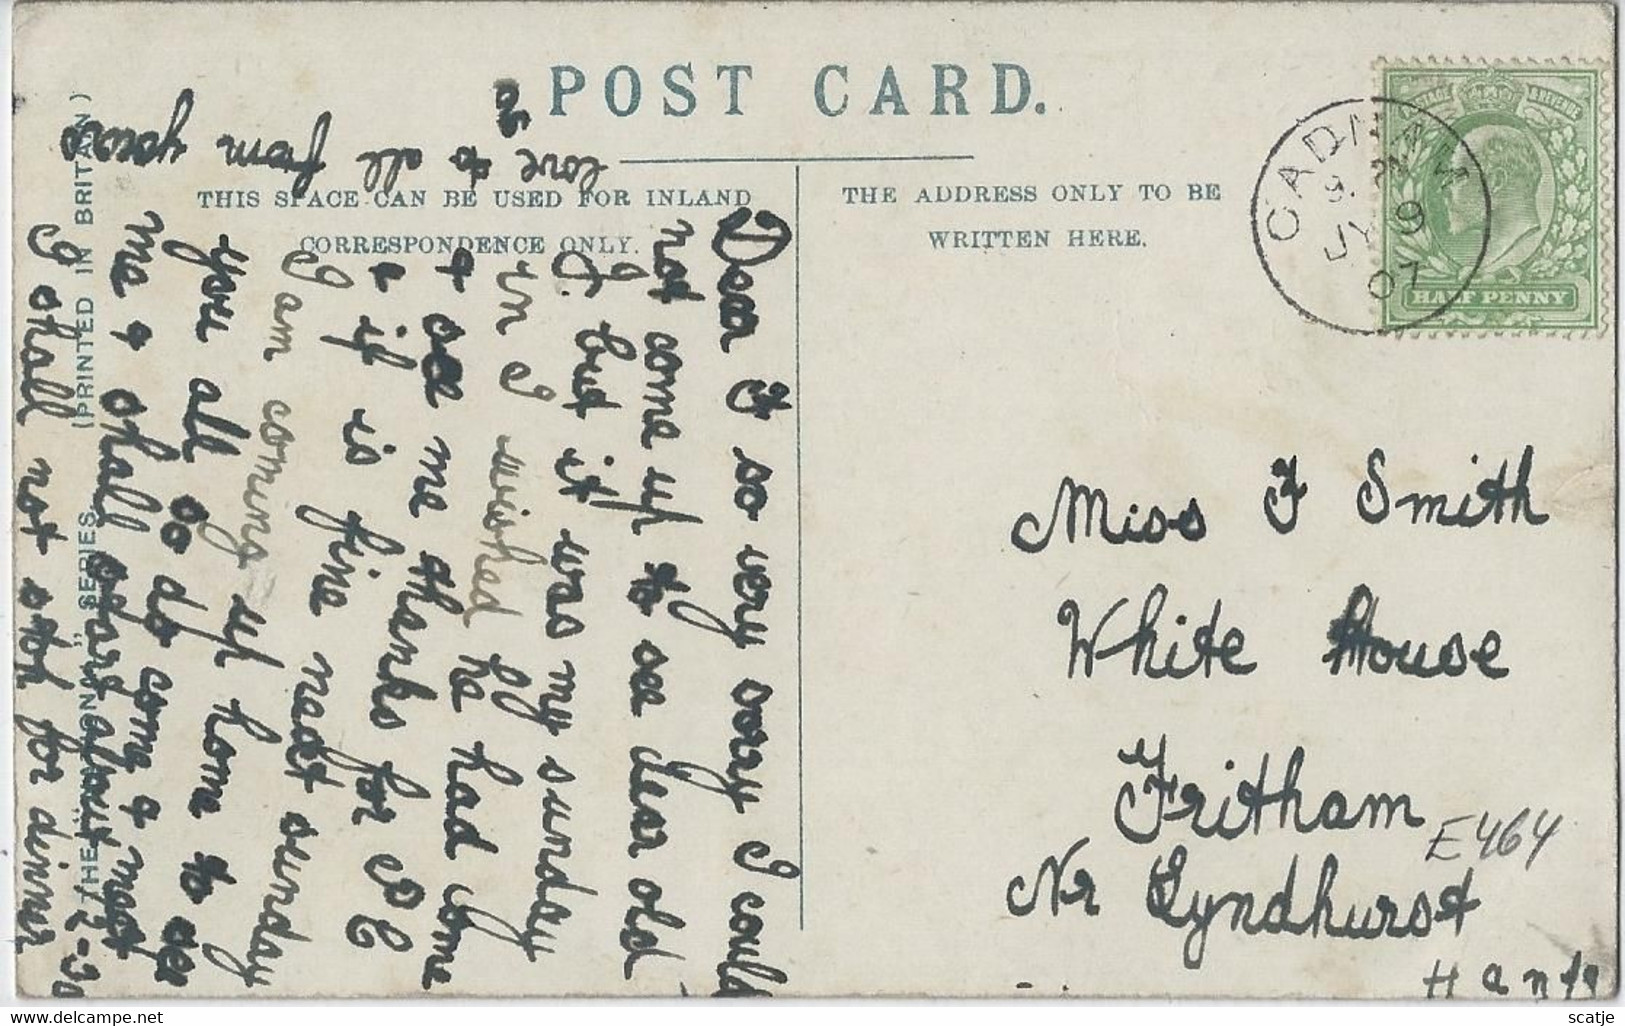 POST CARD.
THIS SPACE CAN BE USED FOR INLAND
CORRESPONDENCE ONLY.
THE ADDRESS ONLY TO BE
WRITTEN HERE.
CADNAM
JY 9
07
HALF PENNY
Miss F Smith
White House
Fritham
Nr Lyndhurst
Hants
E464
Dear F so very sorry I could
not come up to see dear old
J. but it was my sunday
in I wished he had come
+ see me thanks for PC
+ if is fine next sunday
I am coming up home to see
you all so do come & meet
me + shall start about 2-30
I shall not stop for dinner
love to all from yours
(PRINTED IN BRITAIN)
SERIES
www.delcampe.net
scatje